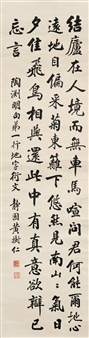 結廬在人境而無車馬喧問君何能爾地心
遠地自偏采菊東籬下悠然見南山〻氣日
夕佳飛鳥相與還此中有真意欲辯已
忘言
陶淵明句第一行地字衍文 靜園黃樹仁